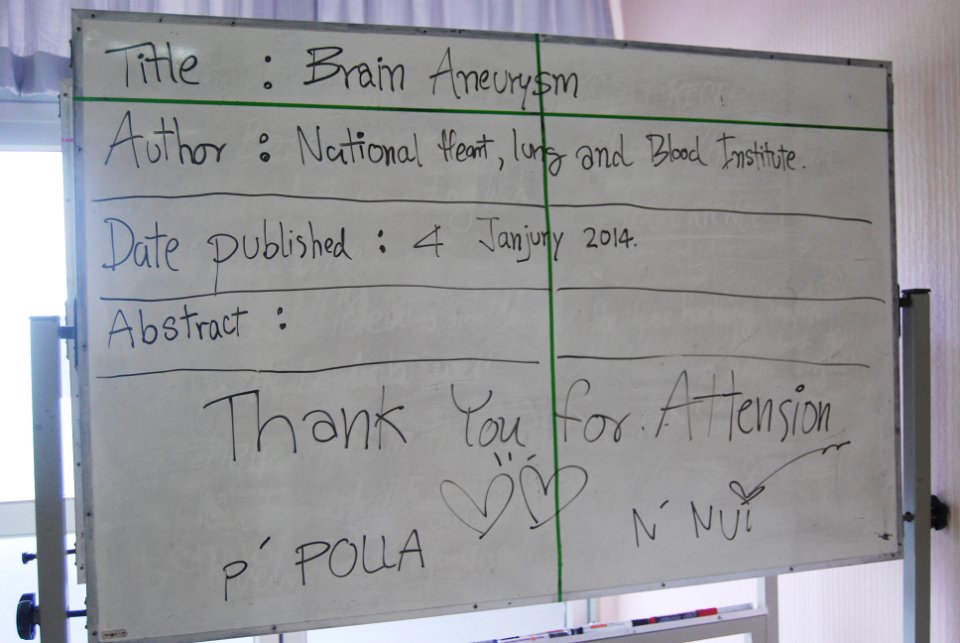 Title : Brain Aneurysm
Author : National Heart, lung and Blood Institute.
Date published : 4 Janjury 2014.
Abstract :
Thank You for Attension
P' POLLA
N' NUi